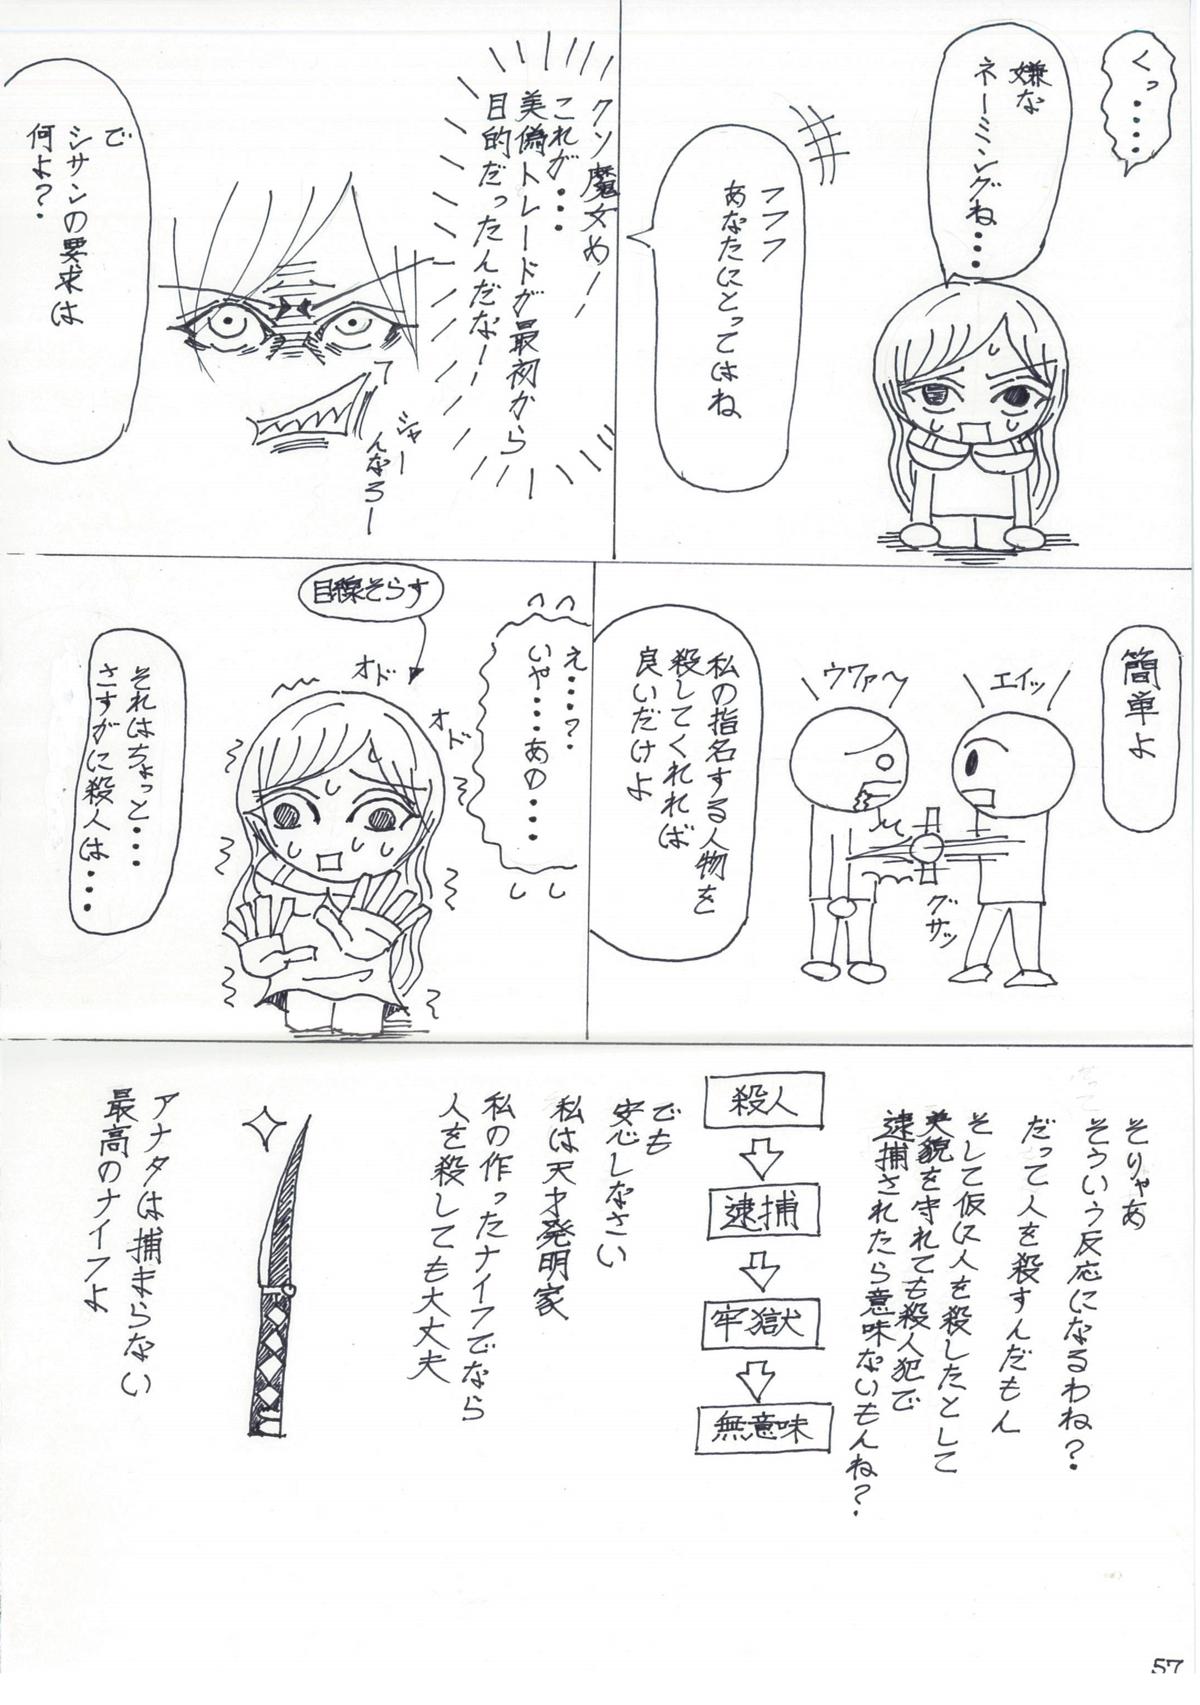 くっ・・・・
嫌な
ネーミングね・・・
フフフ
あなたにとってはね
クソ魔女め！
これが・・・
美偽トレードが最初から
目的だったんだな！
シャー
んなろー
で
シサンの要求は
何よ？
簡単よ
エイッ
ウワァ〜
グサッ
私の指名する人物を
殺してくれれば
良いだけよ
え・・・・？
いや・・・あの・・・・
目線そらす
オド
オド
それはちょっと・・・
さすがに殺人は・・・・
そりゃあ
そういう反応になるわね？
だって人を殺すんだもん
そして仮に人を殺したとして
美貌を守れても殺人犯で
逮捕されたら意味ないもんね？
殺人
逮捕
牢獄
無意味
でも
安心しなさい
私は天才発明家
私の作ったナイフでなら
人を殺しても大丈夫
アナタは捕まらない
最高のナイフよ
57